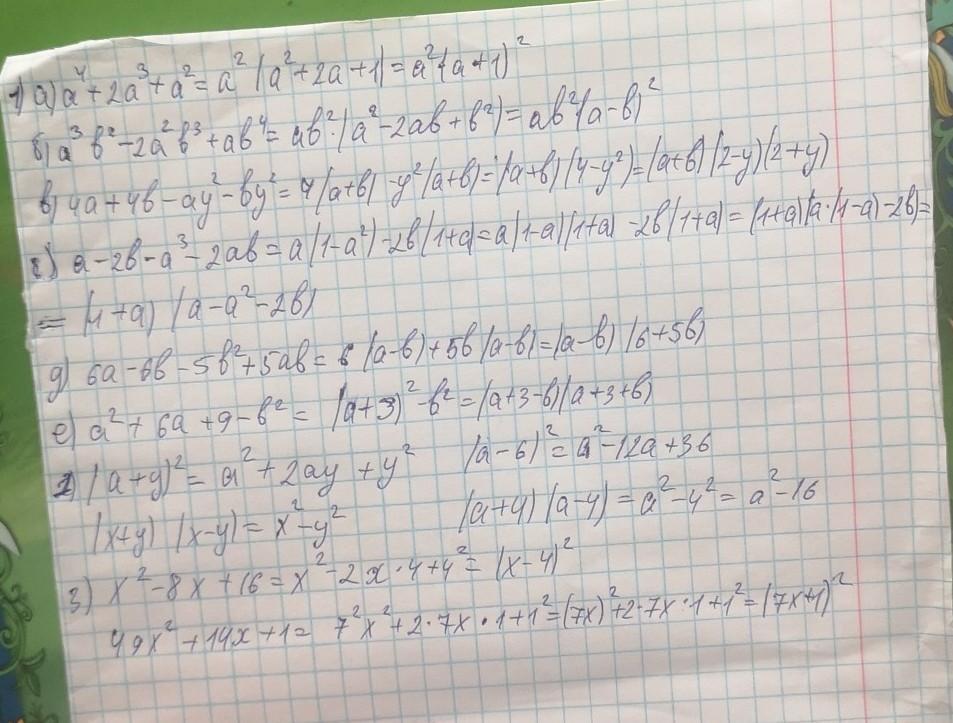 1) а) a⁴ + 2a³ + a² = a² (a² + 2a + 1) = a² (a + 1)²
б) a³b² - 2a²b³ + ab⁴ = ab² · (a² - 2ab + b²) = ab² (a - b)²
в) 4a + 4b - ay² - by² = 4 (a+b) - y² (a+b) = (a+b) (4 - y²) = (a+b) (2-y) (2+y)
г) a - 2b - a³ - 2ab = a (1 - a²) - 2b (1+a) = a (1-a) (1+a) - 2b (1+a) = (1+a) (a·(1-a) - 2b) =
= (1+a) (a - a² - 2b)
д) 6a - 6b - 5b² + 5ab = 6 (a-b) + 5b (a-b) = (a-b) (6+5b)
е) a² + 6a + 9 - b² = (a+3)² - b² = (a+3-b) (a+3+b)
2) (a+y)² = a² + 2ay + y² (a-6)² = a² - 12a + 36
(x+y) (x-y) = x² - y² (a+4) (a-4) = a² - 4² = a² - 16
3) x² - 8x + 16 = x² - 2x · 4 + 4² = (x-4)²
49x² + 14x + 1 = 7²x² + 2 · 7x · 1 + 1² = (7x)² + 2 · 7x · 1 + 1² = (7x+1)²